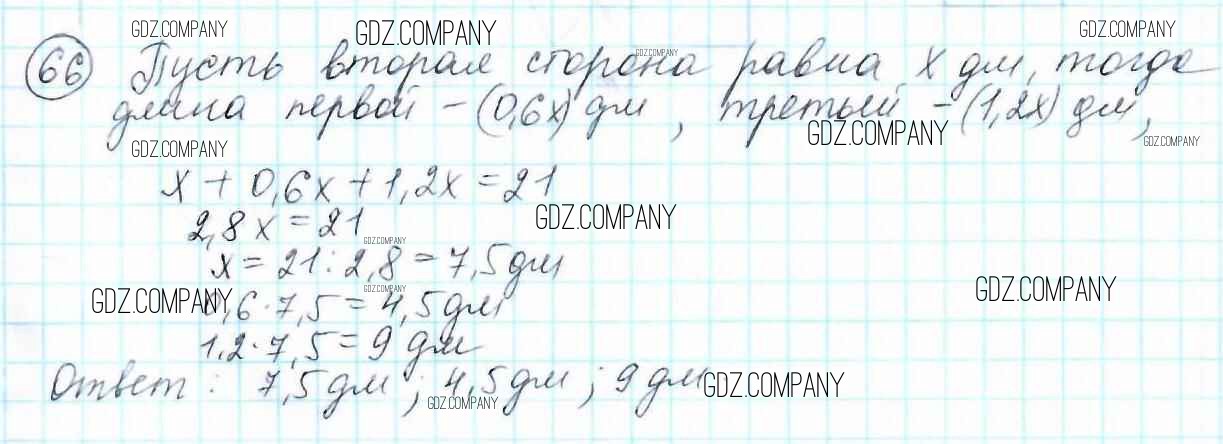 GDZ.COMPANY GDZ.COMPANY GDZ.COMPANY
66 Пусть вторая сторона равна x дм, тогда
GDZ.COMPANY
длина первой – (0,6x) дм, третьей – (1,2x) дм,
GDZ.COMPANY GDZ.COMPANY GDZ.COMPANY
x + 0,6x + 1,2x = 21
2,8x = 21 GDZ.COMPANY
GDZ.COMPANY
x = 21 : 2,8 = 7,5 дм
GDZ.COMPANY GDZ.COMPANY
GDZ.COMPANY 0,6 · 7,5 = 4,5 дм
1,2 · 7,5 = 9 дм
Ответ: 7,5 дм; 4,5 дм; 9 дм GDZ.COMPANY
GDZ.COMPANY